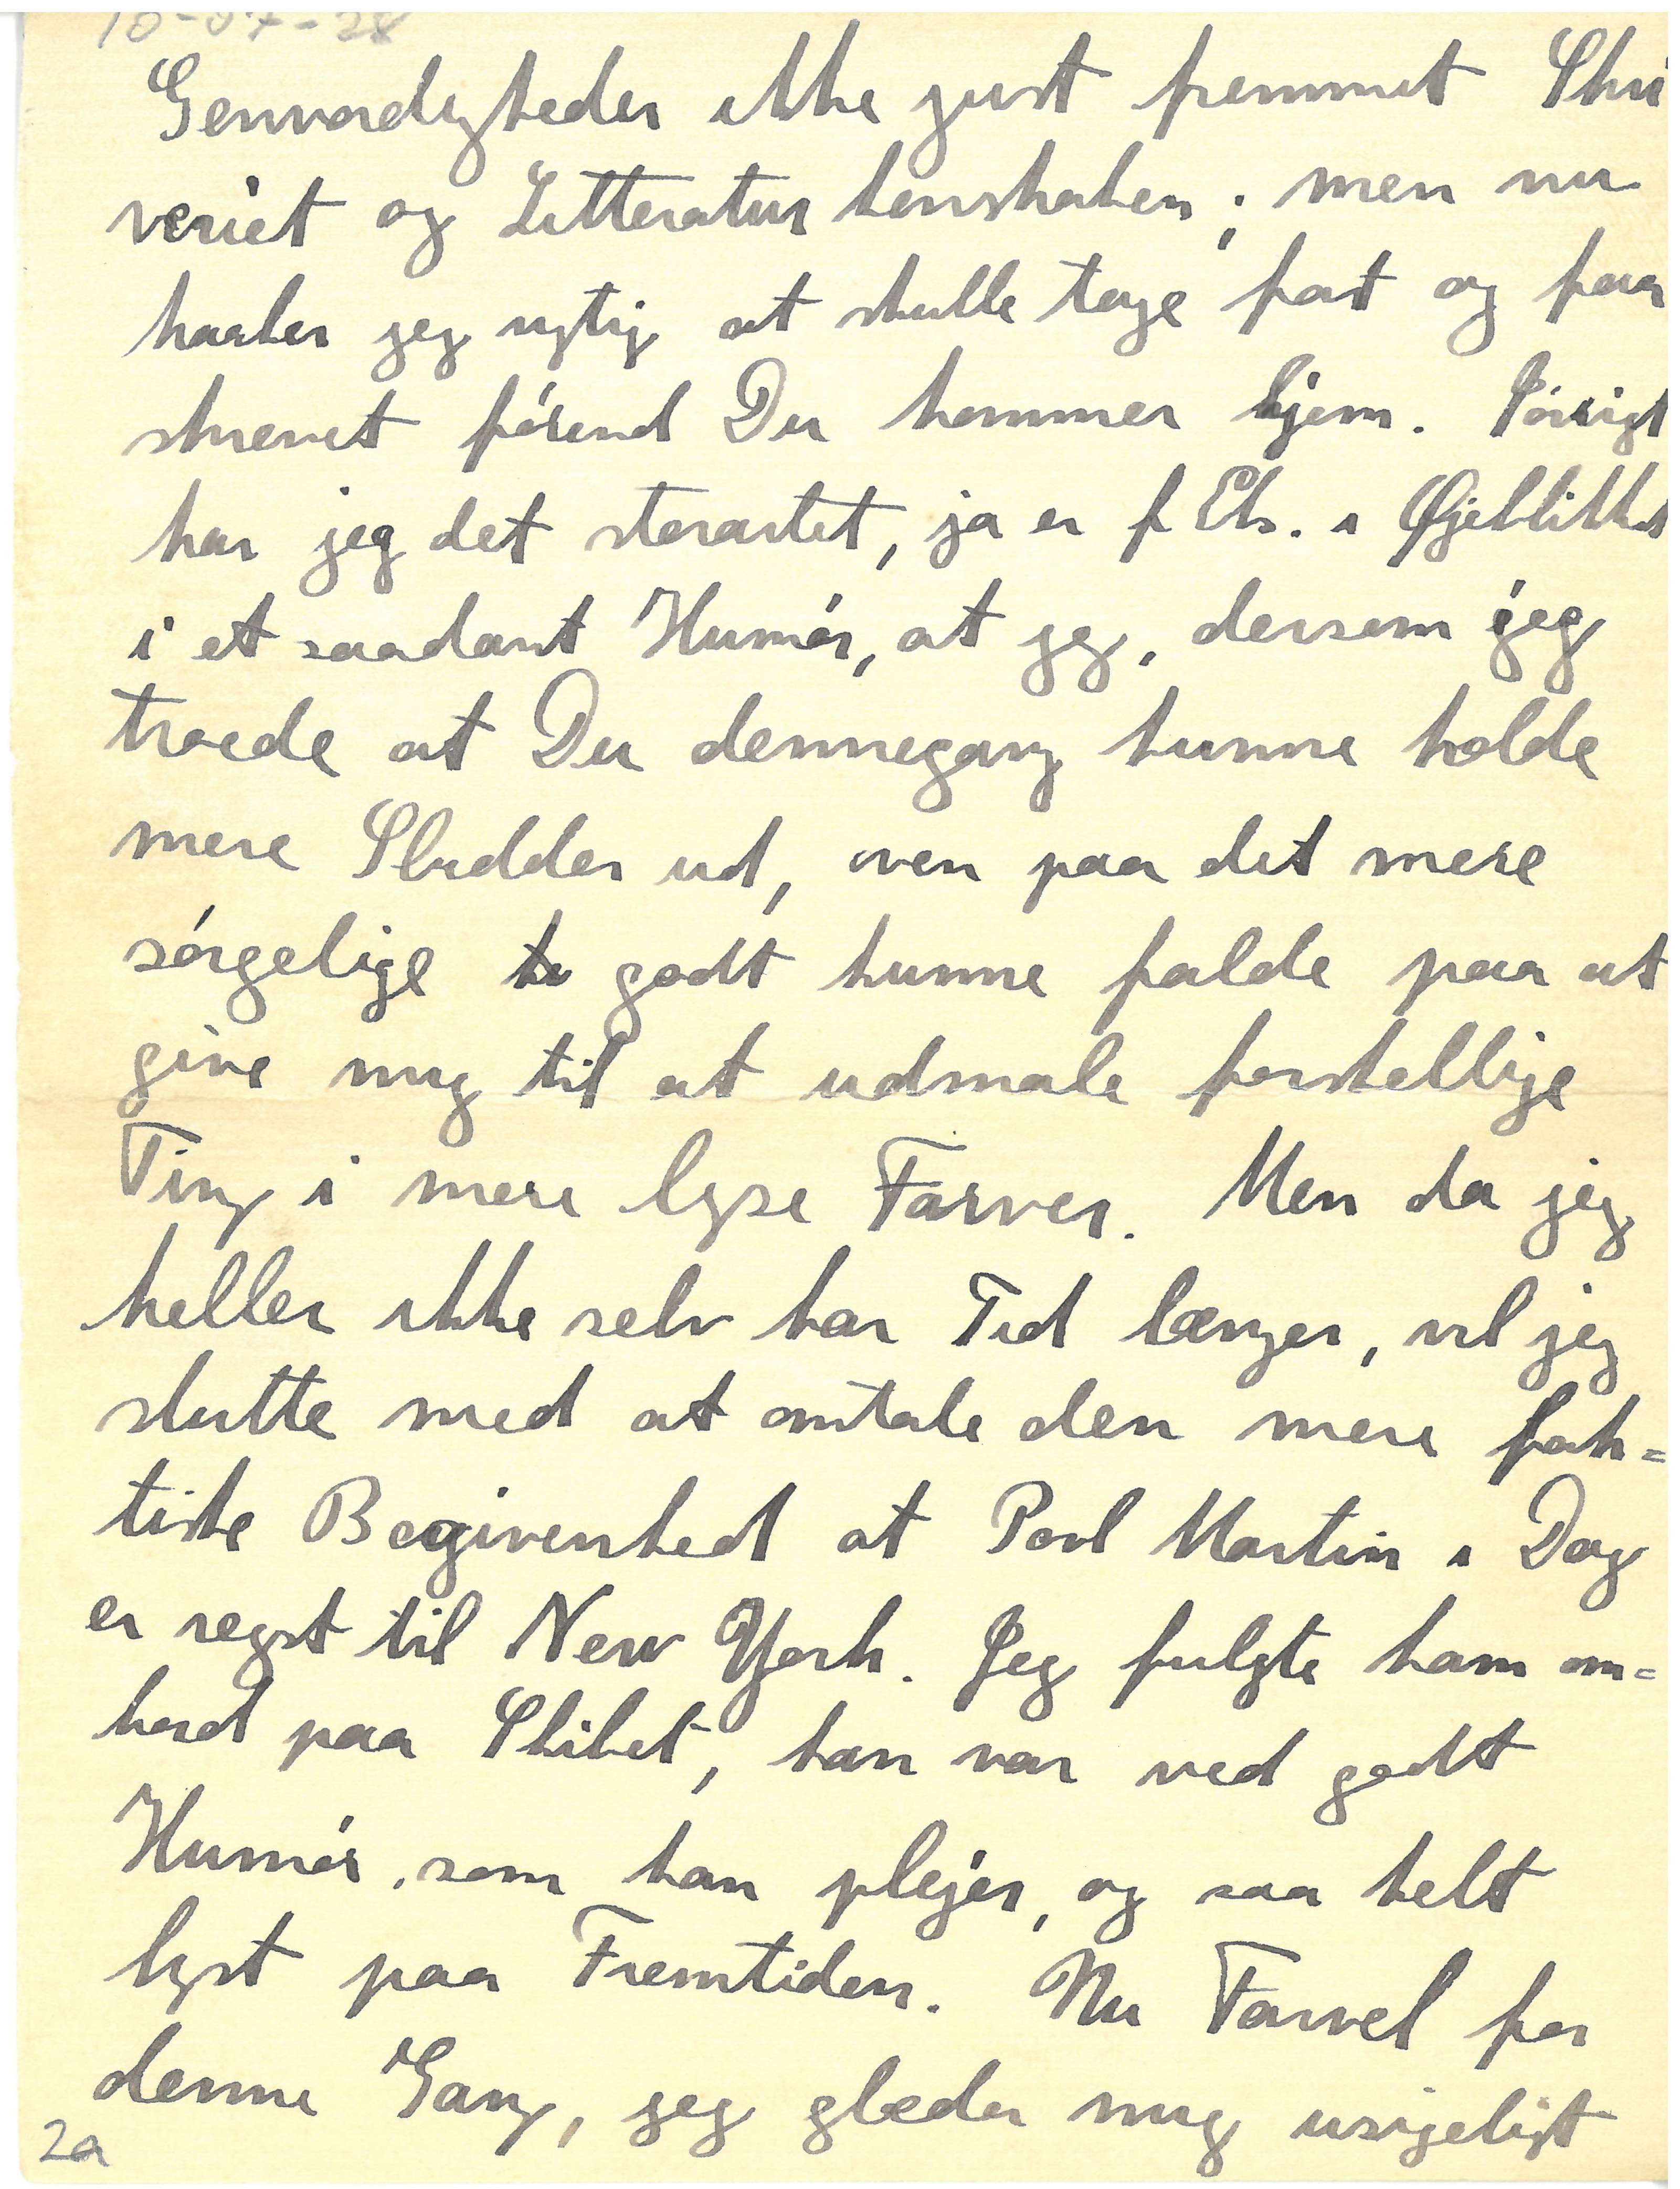 10-07-28
Genvordigheder ikke just fremmet Skri
veriet og Litteraturkenskaben; men nu
haaber jeg rigtig at skulle tage fat og faa
skrevet førend Du kommer hjem. Iøvrigt
har jeg det storartet, ja er f Eks. i Øjeblikket
i et saadant Humør, at jeg, dersom jeg
troede at Du dennegang kunne holde
mere Sludder ud, oven paa det mere
sørgelige godt kunne falde paa at
give mig til at udmale forskellige
Ting i mere lyse Farver. Men da jeg
heller ikke selv har Tid længer, vil jeg
slutte med at omtale den mere fak=
tiske Begivenhed at Povl Martin i Dag
er rejst til New York. Jeg fulgte ham om=
bord paa Skibet, han var ved godt
Humør, som han plejer, og saa helt
lyst paa Fremtiden. Nu Farvel for
denne Gang, jeg glæder mig usigeligt
2a